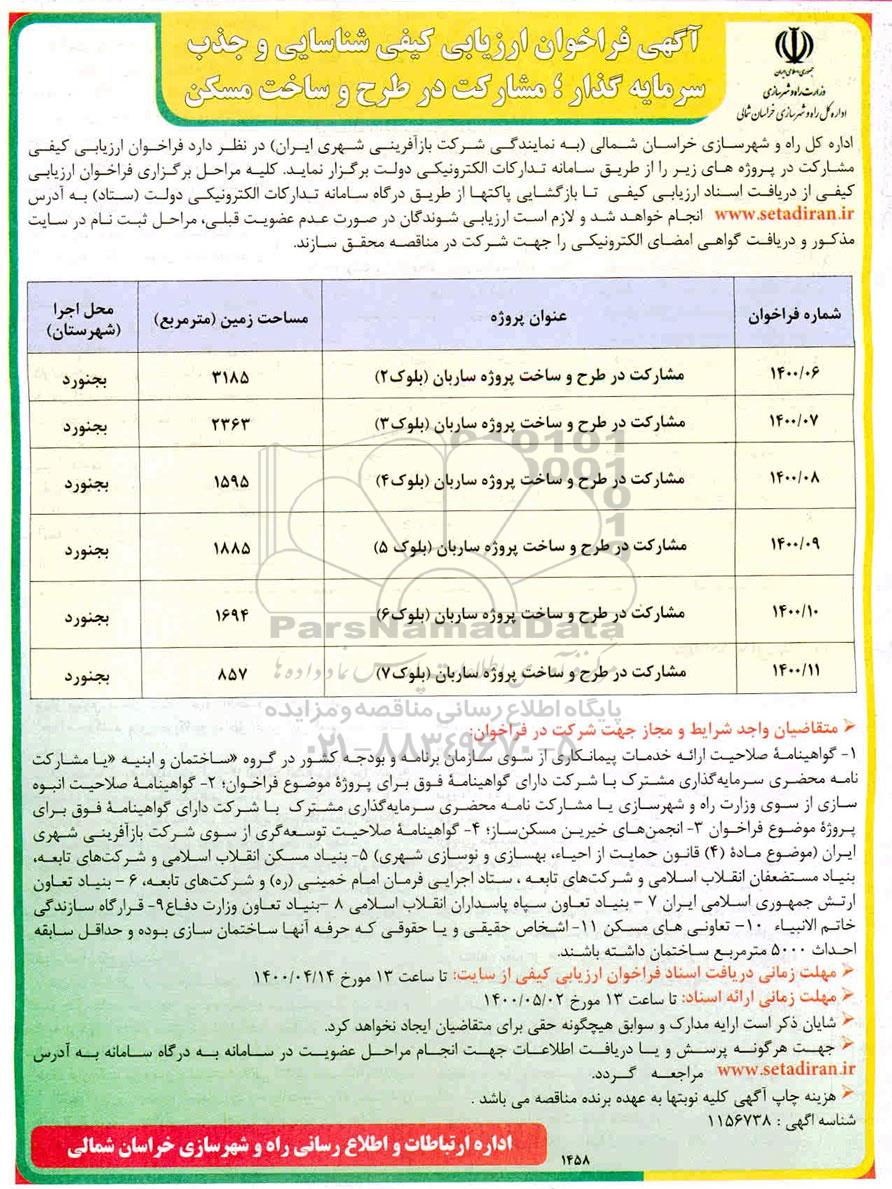 آگهی فراخوان ارزیابی کیفی شناسایی و جذب
سرمایه گذار ؛ مشارکت در طرح و ساخت مسکن
جمهوری اسلامی ایران
وزارت راه و شهرسازی
اداره کل راه و شهرسازی خراسان شمالی
اداره کل راه و شهرسازی خراسان شمالی (به نمایندگی شرکت بازآفرینی شهری ایران) در نظر دارد فراخوان ارزیابی کیفی
مشارکت در پروژه های زیر را از طریق سامانه تدارکات الکترونیکی دولت برگزار نماید. کلیه مراحل برگزاری فراخوان ارزیابی
کیفی از دریافت اسناد ارزیابی کیفی تا بازگشایی پاکتها از طریق درگاه سامانه تدارکات الکترونیکی دولت (ستاد) به آدرس
www.setadiran.ir انجام خواهد شد و لازم است ارزیابی شوندگان در صورت عدم عضویت قبلی، مراحل ثبت نام در سایت
مذکور و دریافت گواهی امضای الکترونیکی را جهت شرکت در مناقصه محقق سازند.
شماره فراخوان عنوان پروژه مساحت زمین (مترمربع) محل اجرا (شهرستان)
۱۴۰۰/۰۶ مشارکت در طرح و ساخت پروژه ساربان (بلوک۲) ۳۱۸۵ بجنورد
۱۴۰۰/۰۷ مشارکت در طرح و ساخت پروژه ساربان (بلوک۳) ۲۳۶۳ بجنورد
۱۴۰۰/۰۸ مشارکت در طرح و ساخت پروژه ساربان (بلوک۴) ۱۵۹۵ بجنورد
۱۴۰۰/۰۹ مشارکت در طرح و ساخت پروژه ساربان (بلوک ۵) ۱۸۸۵ بجنورد
۱۴۰۰/۱۰ مشارکت در طرح و ساخت پروژه ساربان (بلوک۶) ۱۶۹۴ بجنورد
۱۴۰۰/۱۱ مشارکت در طرح و ساخت پروژه ساربان (بلوک۷) ۸۵۷ بجنورد
ParsNamadData
پایگاه اطلاع رسانی مناقصه و مزایده
۰۲۱-۸۸۳۴۹۶۷۰-۵
متقاضیان واجد شرایط و مجاز جهت شرکت در فراخوان:
۱- گواهینامهٔ صلاحیت ارائه خدمات پیمانکاری از سوی سازمان برنامه و بودجه کشور در گروه «ساختمان و ابنیه «یا مشارکت
نامه محضری سرمایه‌گذاری مشترک با شرکت دارای گواهینامهٔ فوق برای پروژهٔ موضوع فراخوان؛ ۲- گواهینامهٔ صلاحیت انبوه
سازی از سوی وزارت راه و شهرسازی یا مشارکت نامه محضری سرمایه‌گذاری مشترک با شرکت دارای گواهینامهٔ فوق برای
پروژهٔ موضوع فراخوان ۳- انجمن‌های خیرین مسکن‌ساز؛ ۴- گواهینامهٔ صلاحیت توسعه‌گری از سوی شرکت بازآفرینی شهری
ایران (موضوع مادهٔ (۴) قانون حمایت از احیاء، بهسازی و نوسازی شهری) ۵- بنیاد مسکن انقلاب اسلامی و شرکت‌های تابعه،
بنیاد مستضعفان انقلاب اسلامی و شرکت‌های تابعه ، ستاد اجرایی فرمان امام خمینی (ره) و شرکت‌های تابعه، ۶ - بنیاد تعاون
ارتش جمهوری اسلامی ایران ۷ - بنیاد تعاون سپاه پاسداران انقلاب اسلامی ۸ -بنیاد تعاون وزارت دفاع۹- قرارگاه سازندگی
خاتم الانبیاء ۱۰- تعاونی های مسکن ۱۱- اشخاص حقیقی و یا حقوقی که حرفه آنها ساختمان سازی بوده و حداقل سابقه
احداث ۵۰۰۰ مترمربع ساختمان داشته باشند.
مهلت زمانی دریافت اسناد فراخوان ارزیابی کیفی از سایت: تا ساعت ۱۳ مورخ ۱۴۰۰/۰۴/۱۴
مهلت زمانی ارائه اسناد: تا ساعت ۱۳ مورخ ۱۴۰۰/۰۵/۰۲
شایان ذکر است ارایه مدارک و سوابق هیچگونه حقی برای متقاضیان ایجاد نخواهد کرد.
جهت هرگونه پرسش و یا دریافت اطلاعات جهت انجام مراحل عضویت در سامانه به درگاه سامانه به آدرس
www.setadiran.ir مراجعه گردد.
هزینه چاپ آگهی کلیه نوبتها به عهده برنده مناقصه می باشد .
شناسه اگهی : ۱۱۵۶۷۳۸
اداره ارتباطات و اطلاع رسانی راه و شهرسازی خراسان شمالی
۱۴۵۸